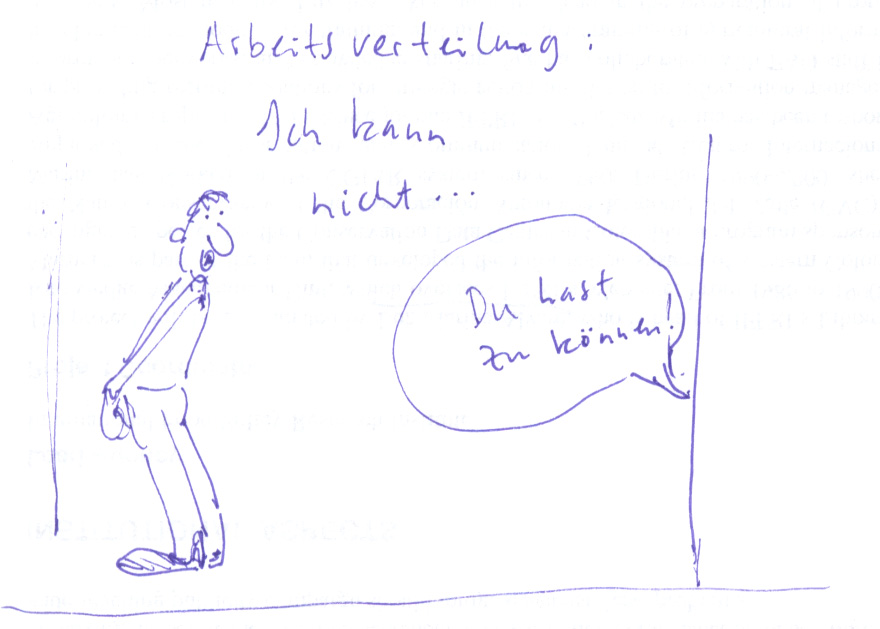 Arbeitsverteilung:
Ich kann
nicht...
Du hast
zu können!